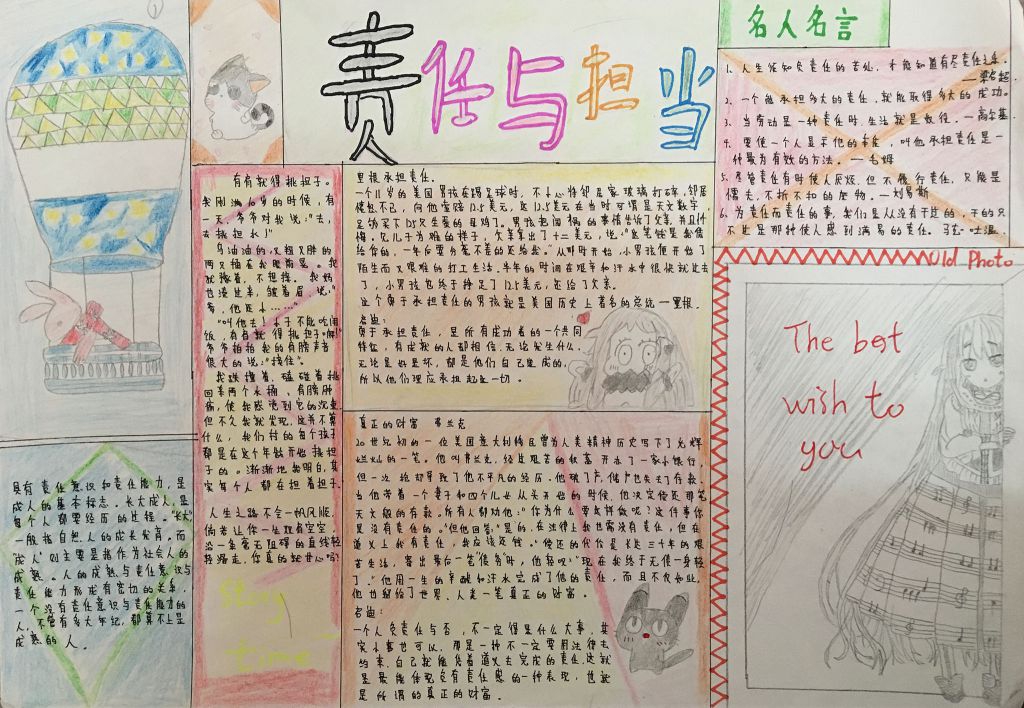 责任与担当
名人名言
1、人生须知负责任的苦处,才能知道有尽责任之乐。
—梁启超
2、一个能承担多大的责任,就能取得多大的成功。
3、当劳动是一种责任时,生活就是奴役。—高尔基
4、要使一个人显示他的本能,叫他承担责任是一
种最为有效的方法。—毛姆
5、尽管责任有时使人厌烦,但不履行责任,只能是
懦夫,不折不扣的废物。—刘易斯
6、为责任而责任的事,我们是从没有干过的,干的只
不过是那种使人感到满意的责任。马克·吐温
Old Photo
The best
wish to
you
有肩就得挑担子。
我刚满6岁的时候,有
一天,爷爷对我说:“去,
去挑担水!”
乌油油的,又粗又胖的
两只桶在我眼前晃。我
犹豫着,不想挑。我妈
也凑过来,皱着眉,说:“
爹,他还小……”
“叫他去!小子不能吃闲
饭,有肩就得挑担子!”
爷爷拍拍我的肩膀声音
很大的说:“接住”。
我跌撞着,磕碰着挑
回来两个水桶,肩膀肿
痛,使我感觉到它的沉重
但不久我就发现,这并不算
什么,我们村的每个孩子
都是在这个年龄开始挑担
子的。渐渐地我明白,其
实每个人都在担着担子。
人生之路不会一帆风顺,
倘若让你一生現肩空空,
沿一条毫无阻碍的直线轻
轻滑走,你真的就甘心吗?
story
time
里根承担责任。
一个11岁的美国男孩在踢足球时,不小心将邻居家玻璃打碎,邻居
愤怒不已,向他索赔12.5美元,这12.5美元在当时可谓是天文数字,
足够买下125只生蛋的母鸡了。男孩把闯祸的事情告诉了父亲,并且忏
悔。见儿子为难的样子,父亲拿出了十二美元,说:“这笔钱是我借
给你的,一年后要分毫不差的还给我。”从那时开始,小男孩便开始了
陌生而又艰难的打工生活。半年的时间在艰辛和汗水中很快就过去
了,小男孩也终于挣足了12.5美元,还给了父亲。
这个勇于承担责任的男孩就是美国历史上著名的总统—里根。
勇于承担责任,是所有成功者的一个共同
特征,有成就的人都相信,无论发生什么,
无论是好是坏,都是他们自己造成的,
所以他们理应承担起这一切。
真正的财富 弗兰克
20世纪初的一位美国意大利籍巨曾为人类精神历史写下了光辉
灿烂的一笔。他叫弗兰克,经过艰苦的积蓄开办了一家小银行,
但一次抢劫导致了他不平凡的经历。他破了产,储户也失去了存款。
当他带着一个妻子和四个儿女从头开始的时候,他决定偿还那笔
天文般的存款。所有人都劝他:“你为什么要这样做呢?这件事你
是没有责任的。”但他回答:“是的,在法律上我也需没有责任,但在
道义上我有责任,我应该还钱。”偿还的代价是长达三十年的艰
苦生活,寄出最后一笔“债务”时,他轻叹:“现在我终于无债一身轻
了。”他用一生的辛酸和汗水完成了他的责任,而且不仅如此,
他也留给了世界、人类一笔真正的财富。
一个人负责任与否,不一定得是什么大事,其
实小事也可以,那是一种不一定要用法律去
约束,自己就能凭着道义去完成的责任,这就
是最能体现负有责任感的一种表现,也就
是所谓的真正的财富。
具有责任意识和责任能力,是
成人的基本标志。长大成人,是
每个人都要经历的过程。“长大”
一般指自然人的成长发育。而
成人”则主要是指作为社会人的
成熟。人的成熟与责任意识与
责任能力形成有密切的关系,
一个没有责任意识与责任能力的
人,不管有多大年纪,都算不上是
成熟的人。